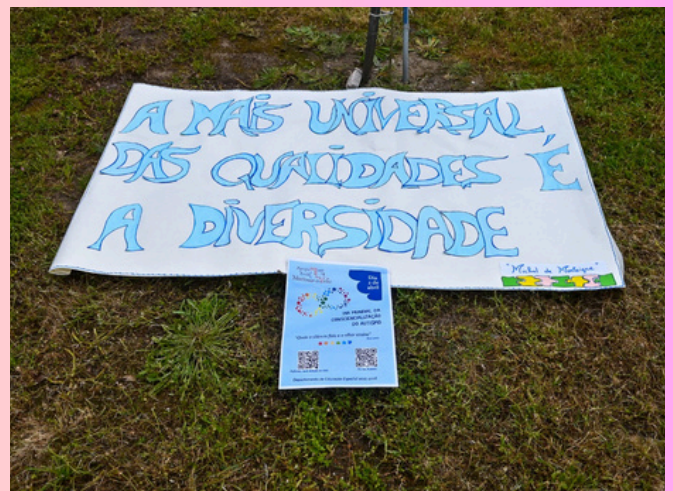 A MAIS UNIVERSAL
DAS QUALIDADES É
A DIVERSIDADE
"Michel de Montaigne"
Dia
2 de
abril
DIA MUNDIAL DA
CONSCIENCIALIZAÇÃO
DO AUTISMO